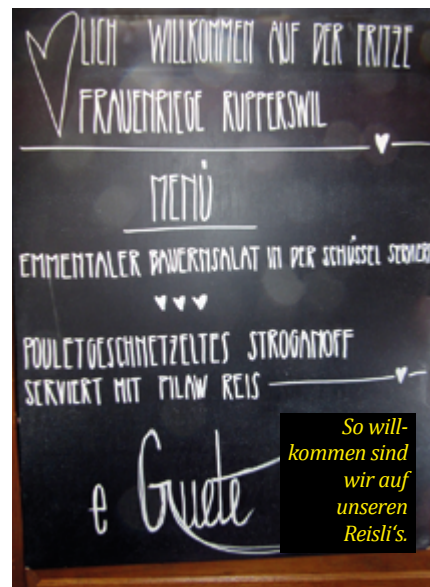 LICH WILLKOMMEN AUF DER FRITZE
FRAUENRIEGE RUPPERSWIL
MENÜ
EMMENTALER BAUERNSALAT IN DER SCHÜSSEL SERVIERT
POULETGESCHNETZELTES STROGANOFF
SERVIERT MIT PILAW REIS
e Guete
So will-
kommen sind
wir auf
unseren
Reisli's.